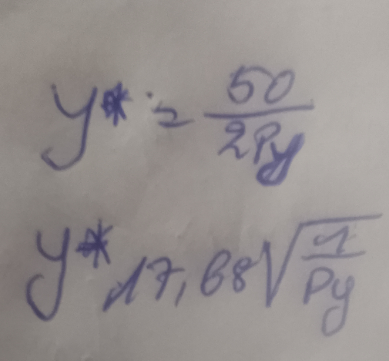 y* = 50/2Py
y* 17,68√1/Py